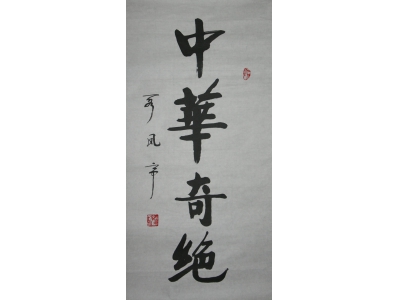 中華奇绝